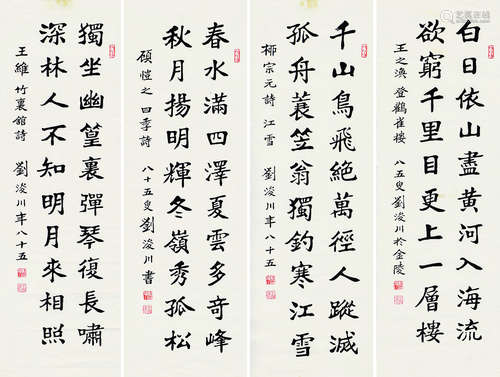 白日依山盡黃河入海流
欲窮千里目更上一層樓
王之渙 登鸛雀樓 八五叟劉浚川於金陵
千山鳥飛絕萬徑人蹤滅
孤舟蓑笠翁獨釣寒江雪
柳宗元詩 江雪 劉浚川年八十五
春水滿四澤夏雲多奇峰
秋月揚明輝冬嶺秀孤松
顧愷之 四季詩 八十五叟劉浚川書
獨坐幽篁裏彈琴復長嘯
深林人不知明月來相照
王維 竹裏館詩 劉浚川年八十五